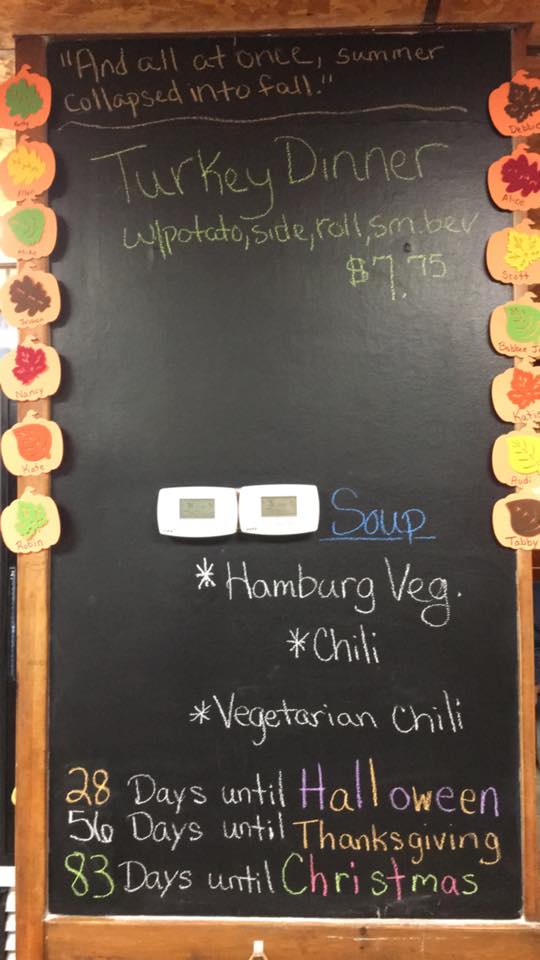 "And all at once, summer
collapsed into fall."
Turkey Dinner
w/potato, side, roll, sm. bev
$7.75
Soup
*Hamburg Veg.
*Chili
*Vegetarian Chili
28 Days until Halloween
56 Days until Thanksgiving
83 Days until Christmas
Ellen
Mike
Nancy
Kate
Robin
Debbie
Alice
Scott
Katie
Rudi
Tabby